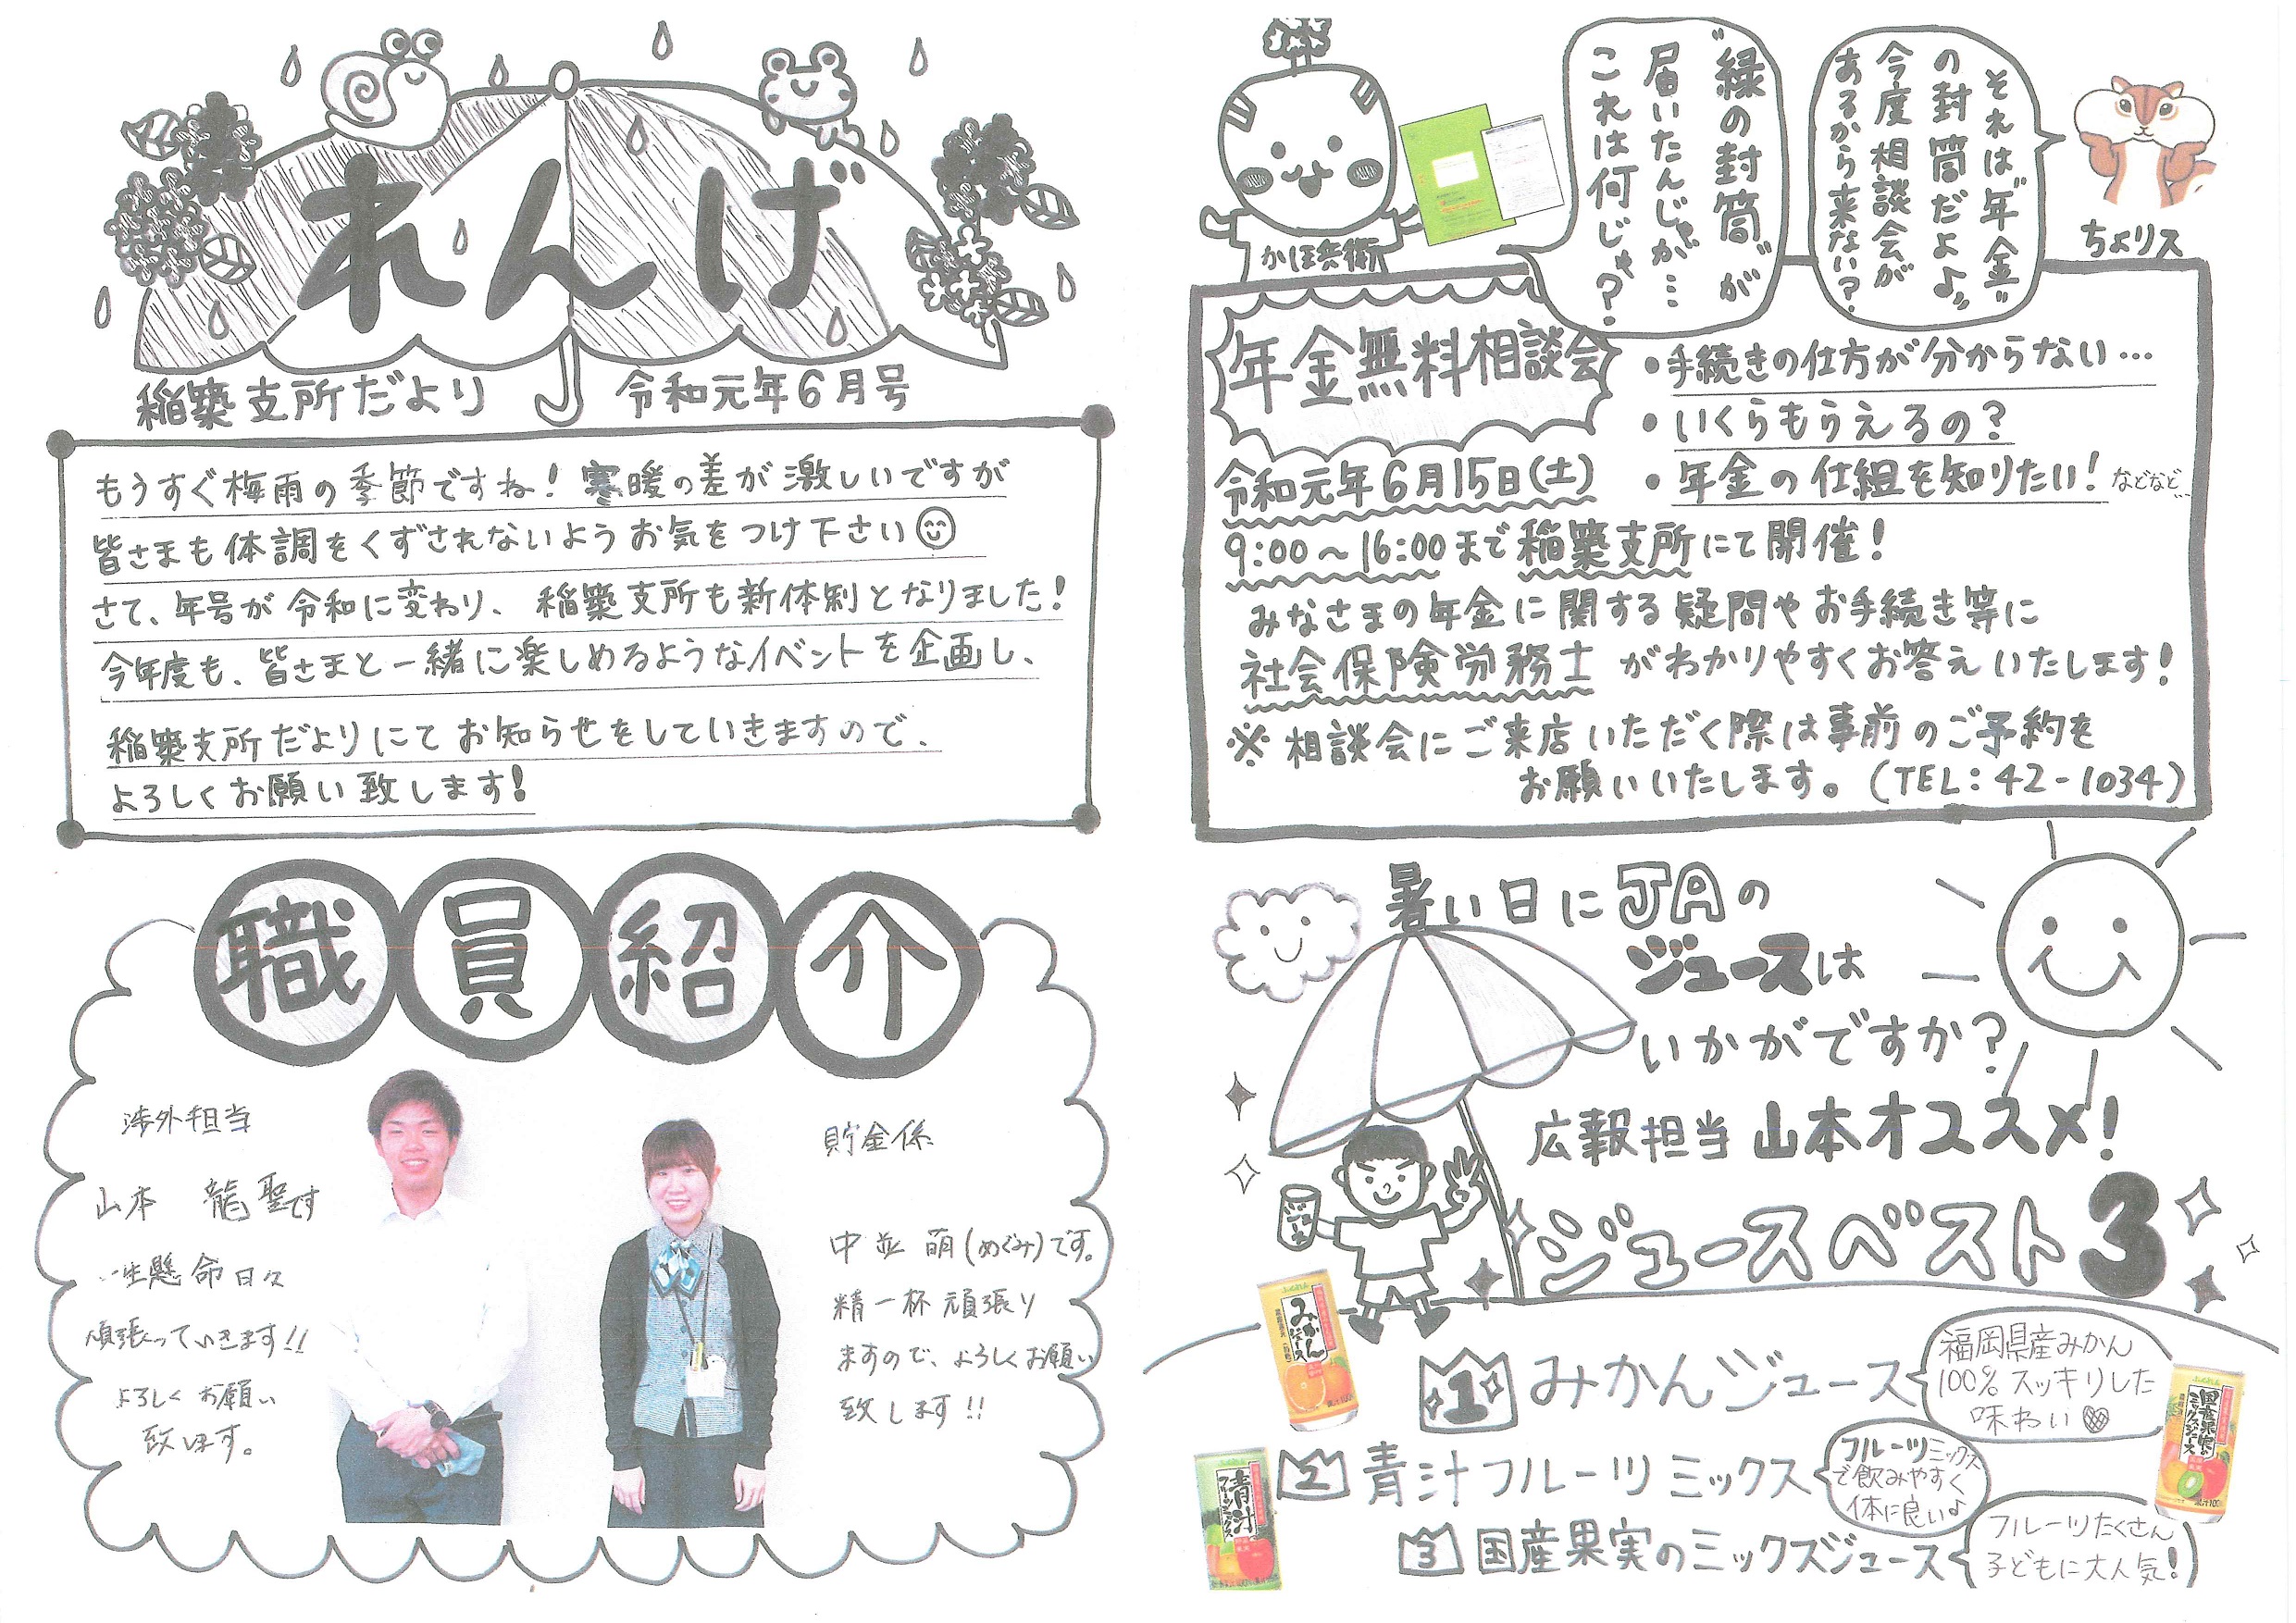 れんげ
稲築支所だより 令和元年6月号
もうすぐ梅雨の季節ですね!寒暖の差が激しいですが
皆さまも体調をくずされないようお気をつけ下さい
さて、年号が令和に変わり、稲築支所も新体制となりました!
今年度も、皆さまと一緒に楽しめるようなイベントを企画し、
稲築支所だよりにてお知らせをしていきますので、
よろしくお願い致します!
職員紹介
渉外担当
山本 龍聖です
一生懸命日々
頑張っていきます!!
よろしくお願い
致します。
貯金係
中並 萌(めぐみ)です。
精一杯頑張り
ますので、よろしくお願い
致します!!
"緑の封筒"が
届いたんじゃが…
これは何じゃ?
それは"年金"
の封筒だよ♪
今度相談会が
あるから来ない?
かほ兵衛
ちょリス
年金無料相談会
・手続きの仕方が分からない…
・いくらもらえるの?
・年金の仕組を知りたい!などなど…
令和元年6月15日(土)
9:00～16:00まで稲築支所にて開催!
みなさまの年金に関する疑問やお手続き等に
社会保険労務士がわかりやすくお答えいたします!
※相談会にご来店いただく際は事前のご予約を
お願いいたします。(TEL:42-1034)
暑い日にJAの
ジュースは
いかがですか?
広報担当 山本オススメ!
ジュース
ジュースベスト3
1 みかんジュース
福岡県産みかん
100%スッキリした
味わい
みかん
ジュース
2 青汁フルーツミックス
フルーツミックス
で飲みやすく
体に良い♪
青汁
フルーツミックス
3 国産果実のミックスジュース
フルーツたくさん
子どもに大人気!
国産果実の
ミックスジュース